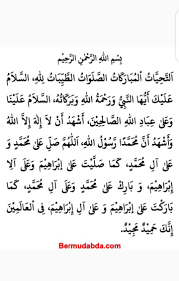 بِسْمِ اللهِ الرَّحْمٰنِ الرَّحِيْمِ
اَلتَّحِيَّاتُ الْمُبَارَكَاتُ الصَّلَوَاتُ الطَّيِّبَاتُ لِلّٰهِ، السَّلَامُ
عَلَيْكَ أَيُّهَا النَّبِيُّ وَرَحْمَةُ اللهِ وَبَرَكَاتُهُ، السَّلَامُ عَلَيْنَا
وَعَلىٰ عِبَادِ اللهِ الصَّالِحِيْنَ، أَشْهَدُ أَنْ لَا إِلٰهَ إِلَّا اللهُ
وَأَشْهَدُ أَنَّ مُحَمَّدًا رَّسُوْلُ اللهِ، اَللّٰهُمَّ صَلِّ عَلىٰ مُحَمَّدٍ وَ
عَلىٰ آلِ مُحَمَّدٍ، كَمَا صَلَّيْتَ عَلىٰ إِبْرَاهِيْمَ وَعَلىٰ آلِ
إِبْرَاهِيْمَ، وَ بَارِكْ عَلىٰ مُحَمَّدٍ وَعَلىٰ آلِ مُحَمَّدٍ، كَمَا
بَارَكْتَ عَلىٰ إِبْرَاهِيْمَ وَ عَلىٰ آلِ إِبْرَاهِيْمَ، فِي الْعَالَمِيْنَ
إِنَّكَ حَمِيْدٌ مَجِيْدٌ.
Bermudabda.com